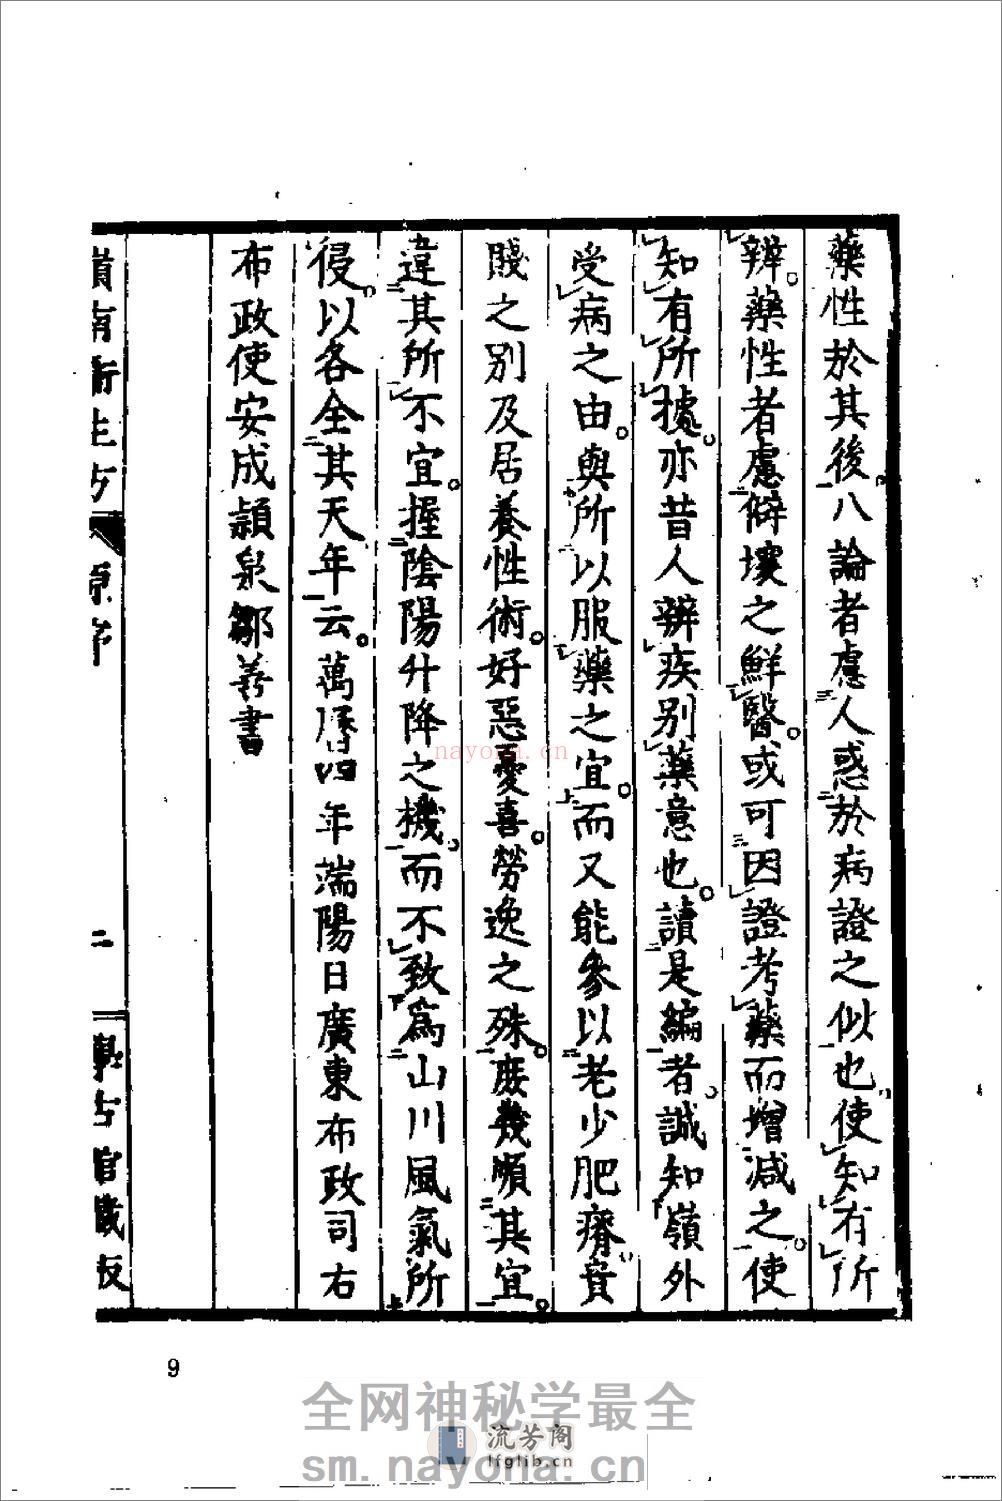 藥性於其後八論者慮人惑於病證之似也使知有所
辨藥性者慮僻壤之鮮醫或可因證考藥而增減之使
知有所據亦昔人辨疾別藥意也讀是編者誠知嶺外
受病之由與所以服藥之宜而又能參以老少肥瘠貴
賤之別及居養性術好惡憂喜勞逸之殊庶幾順其宜
違其所不宜握陰陽升降之機而不致為山川風氣所
侵以各全其天年云萬曆四年端陽日廣東布政司右
布政使安成頴泉鄒善書
嶺南衛生方 原序 二 學古館藏板
9
nayona.cn
全网神秘学最全
流芳阁
lfglib.cn
sm.nayona.cn